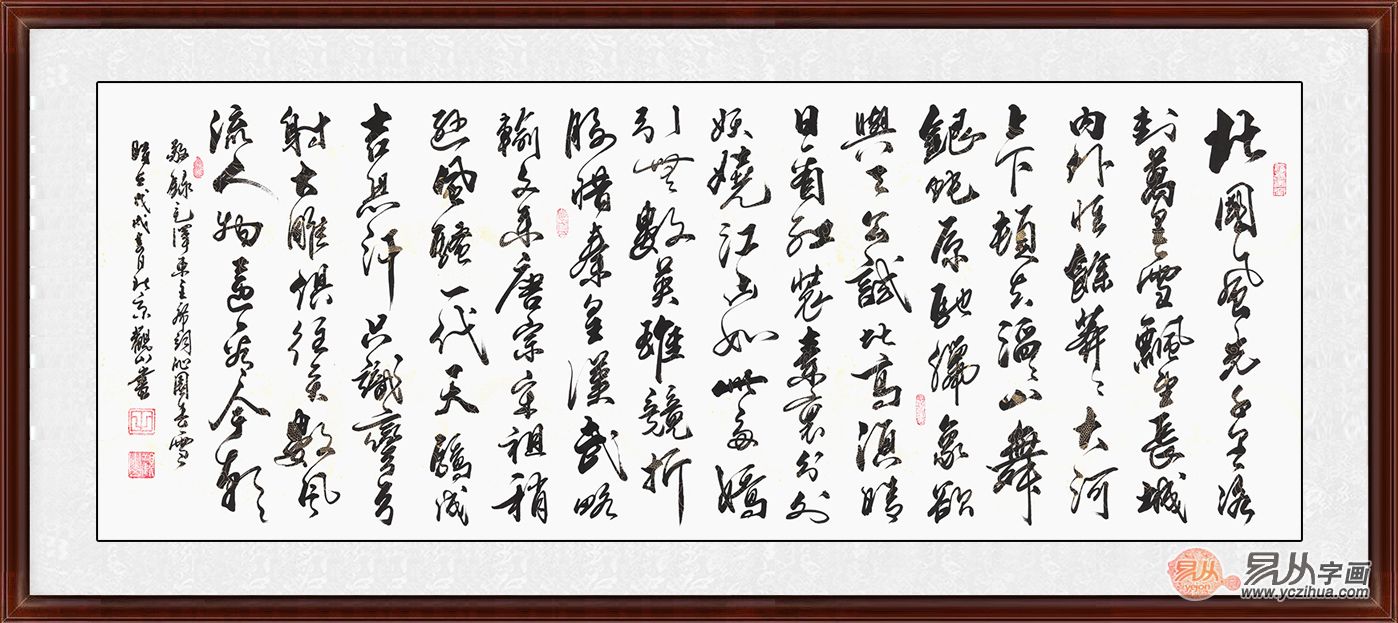 北國風光千里冰
封萬里雪飄望長城
內外惟餘莽々大河
上下頓失滔々山舞
銀蛇原馳臘象欲
與天公試比高須晴
日看紅裝素裹分外
妖嬈江山如此多嬌
引無數英雄競折
腰惜秦皇漢武略
輸文采唐宗宋祖稍
遜風騷一代天驕成
吉思汗只識彎弓
射大雕俱往矣數風
流人物還看今朝
敬錄毛澤東主席詞沁園春雪
時在戊戌春月於京觀山書
易从字画
yeion
www.yczihua.com